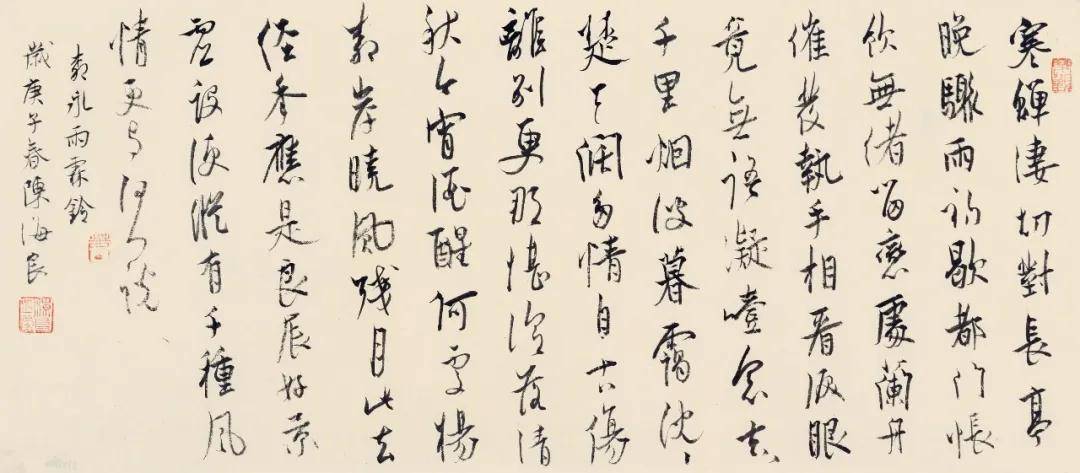 寒蟬淒切對長亭
晚驟雨初歇都门帳
飲無緒留戀處蘭舟
催發執手相看淚眼
竟無語凝噎念去々
千里烟波暮靄沈々
楚天闊多情自古傷
離別更那堪冷落清
秋今宵酒醒何處楊
柳岸曉風殘月此去
經年應是良辰好景
虛設便縱有千種風
情更与何人说
柳永雨霖鈴
歲庚子春陳海良